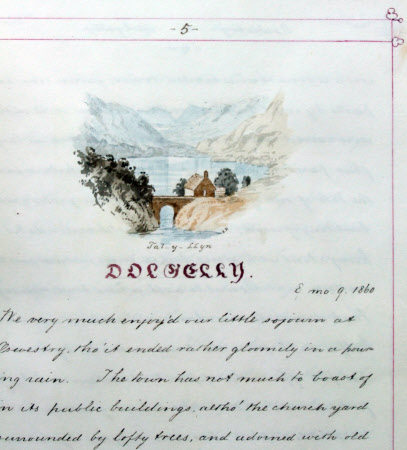 -5-
Tal-y-Llyn
DOLGELLY.
8 mo. 9. 1860
We very much enjoy'd our little sojourn at
Oswestry, tho' it ended rather gloomily in a pour-
ing rain. The town has not much to boast of
in its public buildings, altho' the church yard
surrounded by lofty trees, and adorned with old